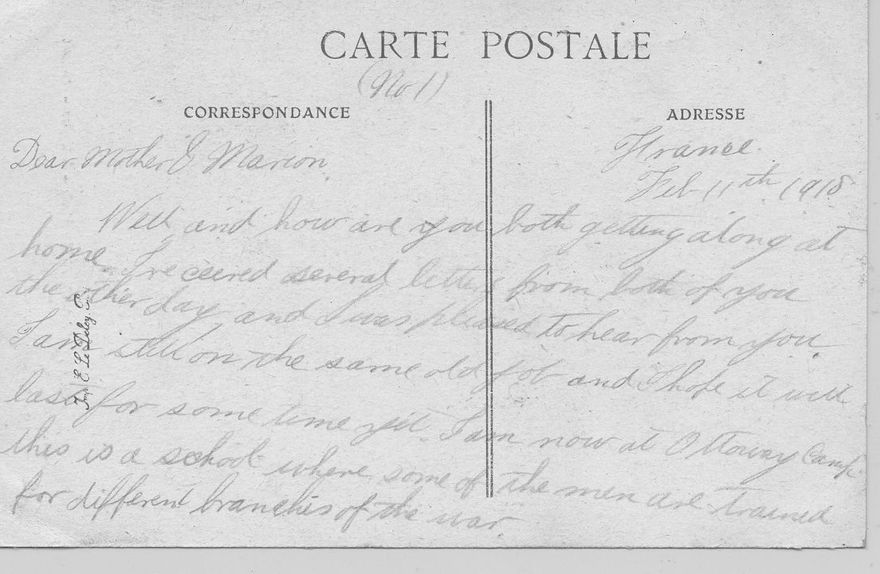 CARTE POSTALE
(No 1)
CORRESPONDANCE
ADRESSE
Dear Mother & Marion
France.
Feb 11th 1918
Well and how are you both getting along at
home. I received several letters from both of you
the other day and I was pleased to hear from you.
I am still on the same old job and I hope it will
last for some time yet. I am now at Ottoway Camp
this is a school where some of the men are trained
for different branches of the war
Imp. E. Le Deley, Paris